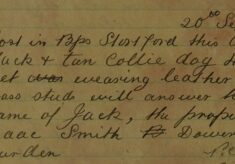 20th Se
ost in Bps Stortford this
ack & tan Collie dog
et was wearing leather
ass studs will answer
ame of Jack, the prope
aac Smith
urden P.C